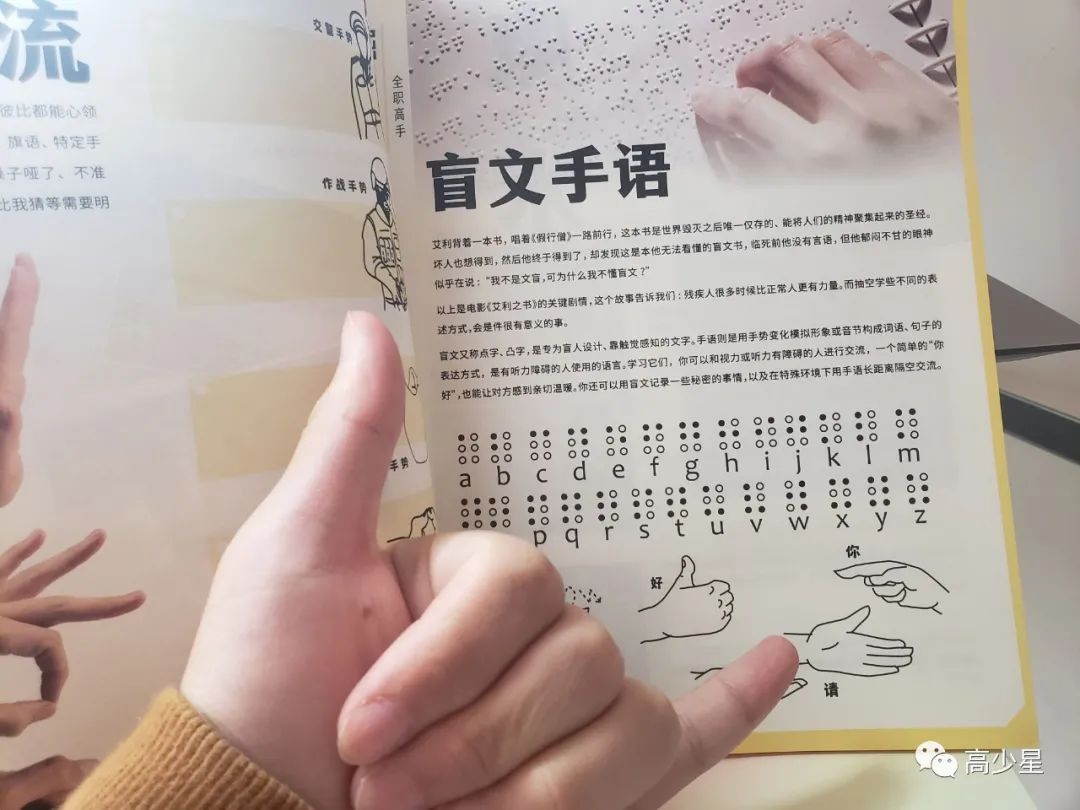 流
彼比都能心领
旗语、特定手
嗓子哑了、不准
比我猜等需要明
交警手势
作战手势
手势
全职高手
盲文手语
艾利背着一本书，唱着《假行僧》一路前行，这本书是世界毁灭之后唯一仅存的、能将人们的精神聚集起来的圣经。
坏人也想得到，然后他终于得到了，却发现这是本他无法看懂的盲文书，临死前他没有言语，但他郁闷不甘的眼神
似乎在说：“我不是文盲，可为什么我不懂盲文？”
以上是电影《艾利之书》的关键剧情，这个故事告诉我们：残疾人很多时候比正常人更有力量。而抽空学些不同的表
述方式，会是件很有意义的事。
盲文又称点字、凸字，是专为盲人设计、靠触觉感知的文字。手语则是用手势变化模拟形象或音节构成词语、句子的
表达方式，是有听力障碍的人使用的语言。学习它们，你可以和视力或听力有障碍的人进行交流，一个简单的“你
好”，也能让对方感到亲切温暖。你还可以用盲文记录一些秘密的事情，以及在特殊环境下用手语长距离隔空交流。
a b c d e f g h i j k l m
p q r s t u v w x y z
好
你
请
高少星